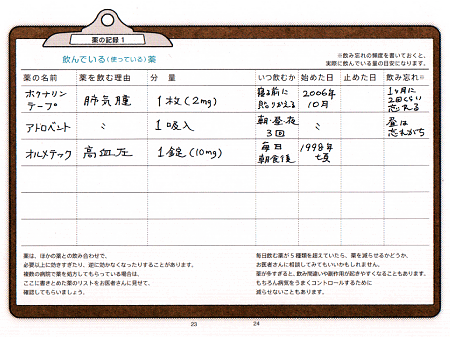 薬の記録 1
飲んでいる(使っている)薬
※飲み忘れの頻度を書いておくと、
実際に飲んでいる量の目安になります。
薬の名前 薬を飲む理由 分 量 いつ飲むか 始めた日 止めた日 飲み忘れ※
ホクナリン
テープ
肺気腫
1枚(2mg)
寝る前に
貼りかえる
2006年
10月
1ヶ月に
2回くらい
忘れる
アトロベント 〃 1吸入
朝・昼・夜
3回
〃
昼は
忘れがち
オルメテック 高血圧 1錠(10mg)
毎日
朝食後
1998年
頃
薬は、ほかの薬との飲み合わせで、
必要以上に効きすぎたり、逆に効かなくなったりすることがあります。
複数の病院で薬を処方してもらっている場合は、
ここに書きとめた薬のリストをお医者さんに見せて、
確認してもらいましょう。
毎日飲む薬が5種類を超えていたら、薬を減らせるかどうか、
お医者さんに相談してみてもいいかもしれません。
薬が多すぎると、飲み間違いや副作用が起きやすくなることもあります。
もちろん病気をうまくコントロールするために
減らせないこともあります。
23
24